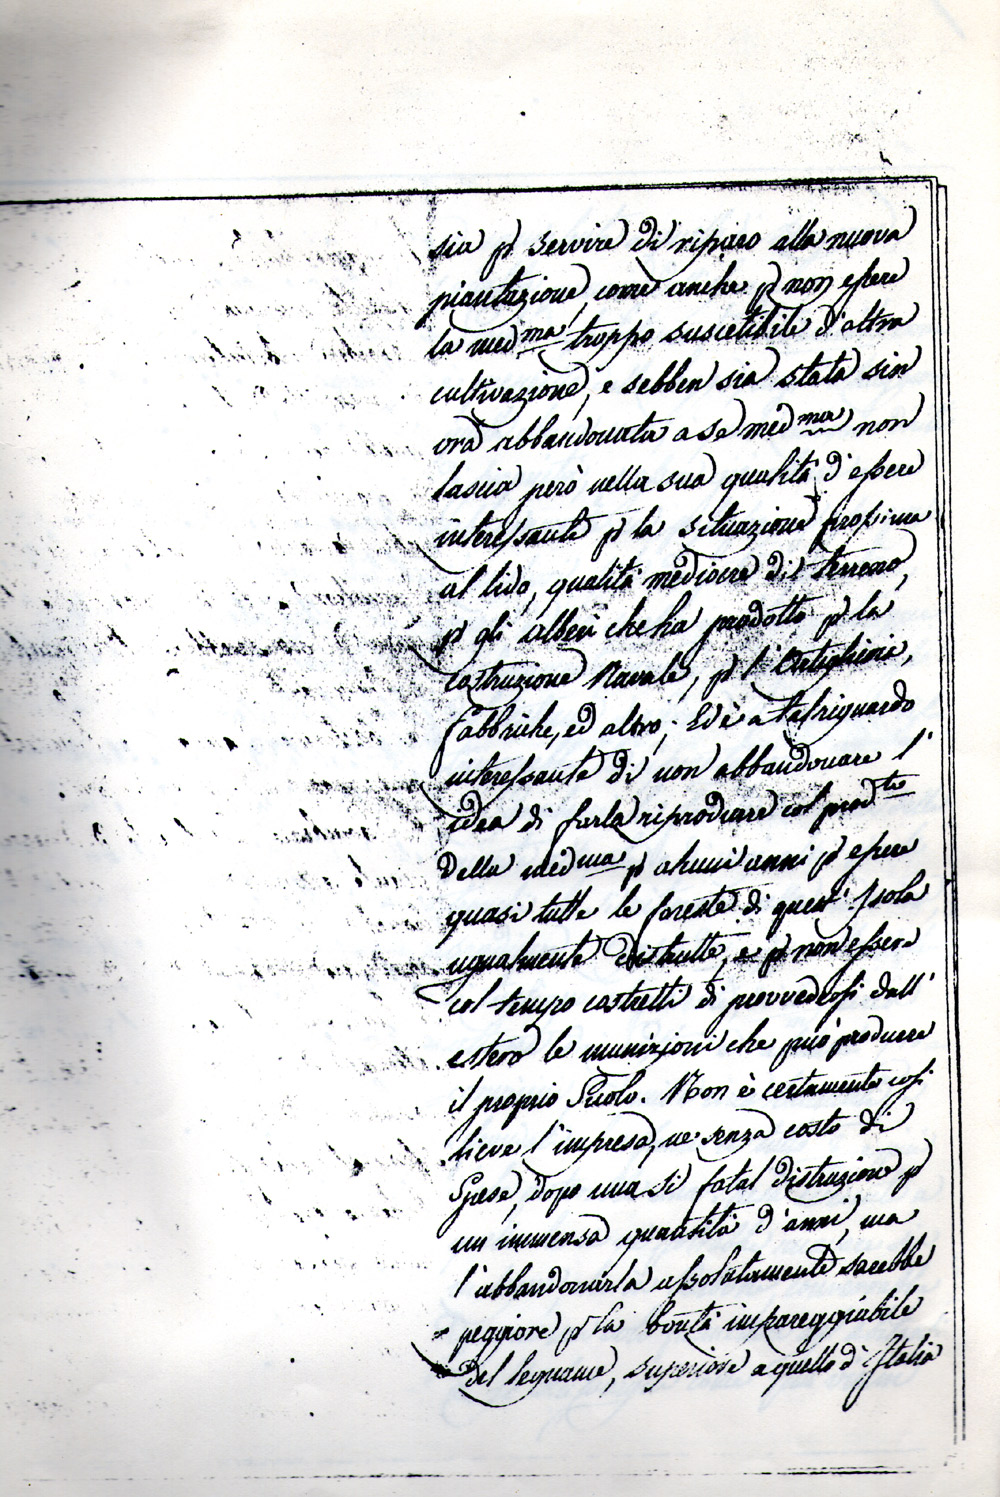 sia p servire di riparo alla nuova
piantazione, come anche p non essere
la med.ma troppo suscetibile d'altra
cultivazione, e sebben sia stata sin
ora abbandonata a se med.ma non
lascia però nella sua qualità d'essere
interessante p la situazione prossima
al lido, qualità mediocre di terreno,
p gli alberi che ha prodotto p la
costruzione Navale, p l'Artiglieria,
Fabbriche, ed altro; Ed è a tal riguardo
interessante di non abbandonare l'
idea di farla riprodurre col prod.to
della med.ma p alcuni anni p essere
quasi tutte le foreste di quest'Isola
ugualmente distrutte, e p non essere
col tempo costretti di provvedersi dall'
estero le munizioni che può produrre
il proprio Suolo. Non è certamente così
lieve l'impresa, ne senza costo di
Spese, dopo una si fatal distruzione p
un immensa quantità d'anni, ma
l'abbandonarla assolutamente sarebbe
peggiore p la bontà impareggiabile
del legname, superiore a quello d'Italia